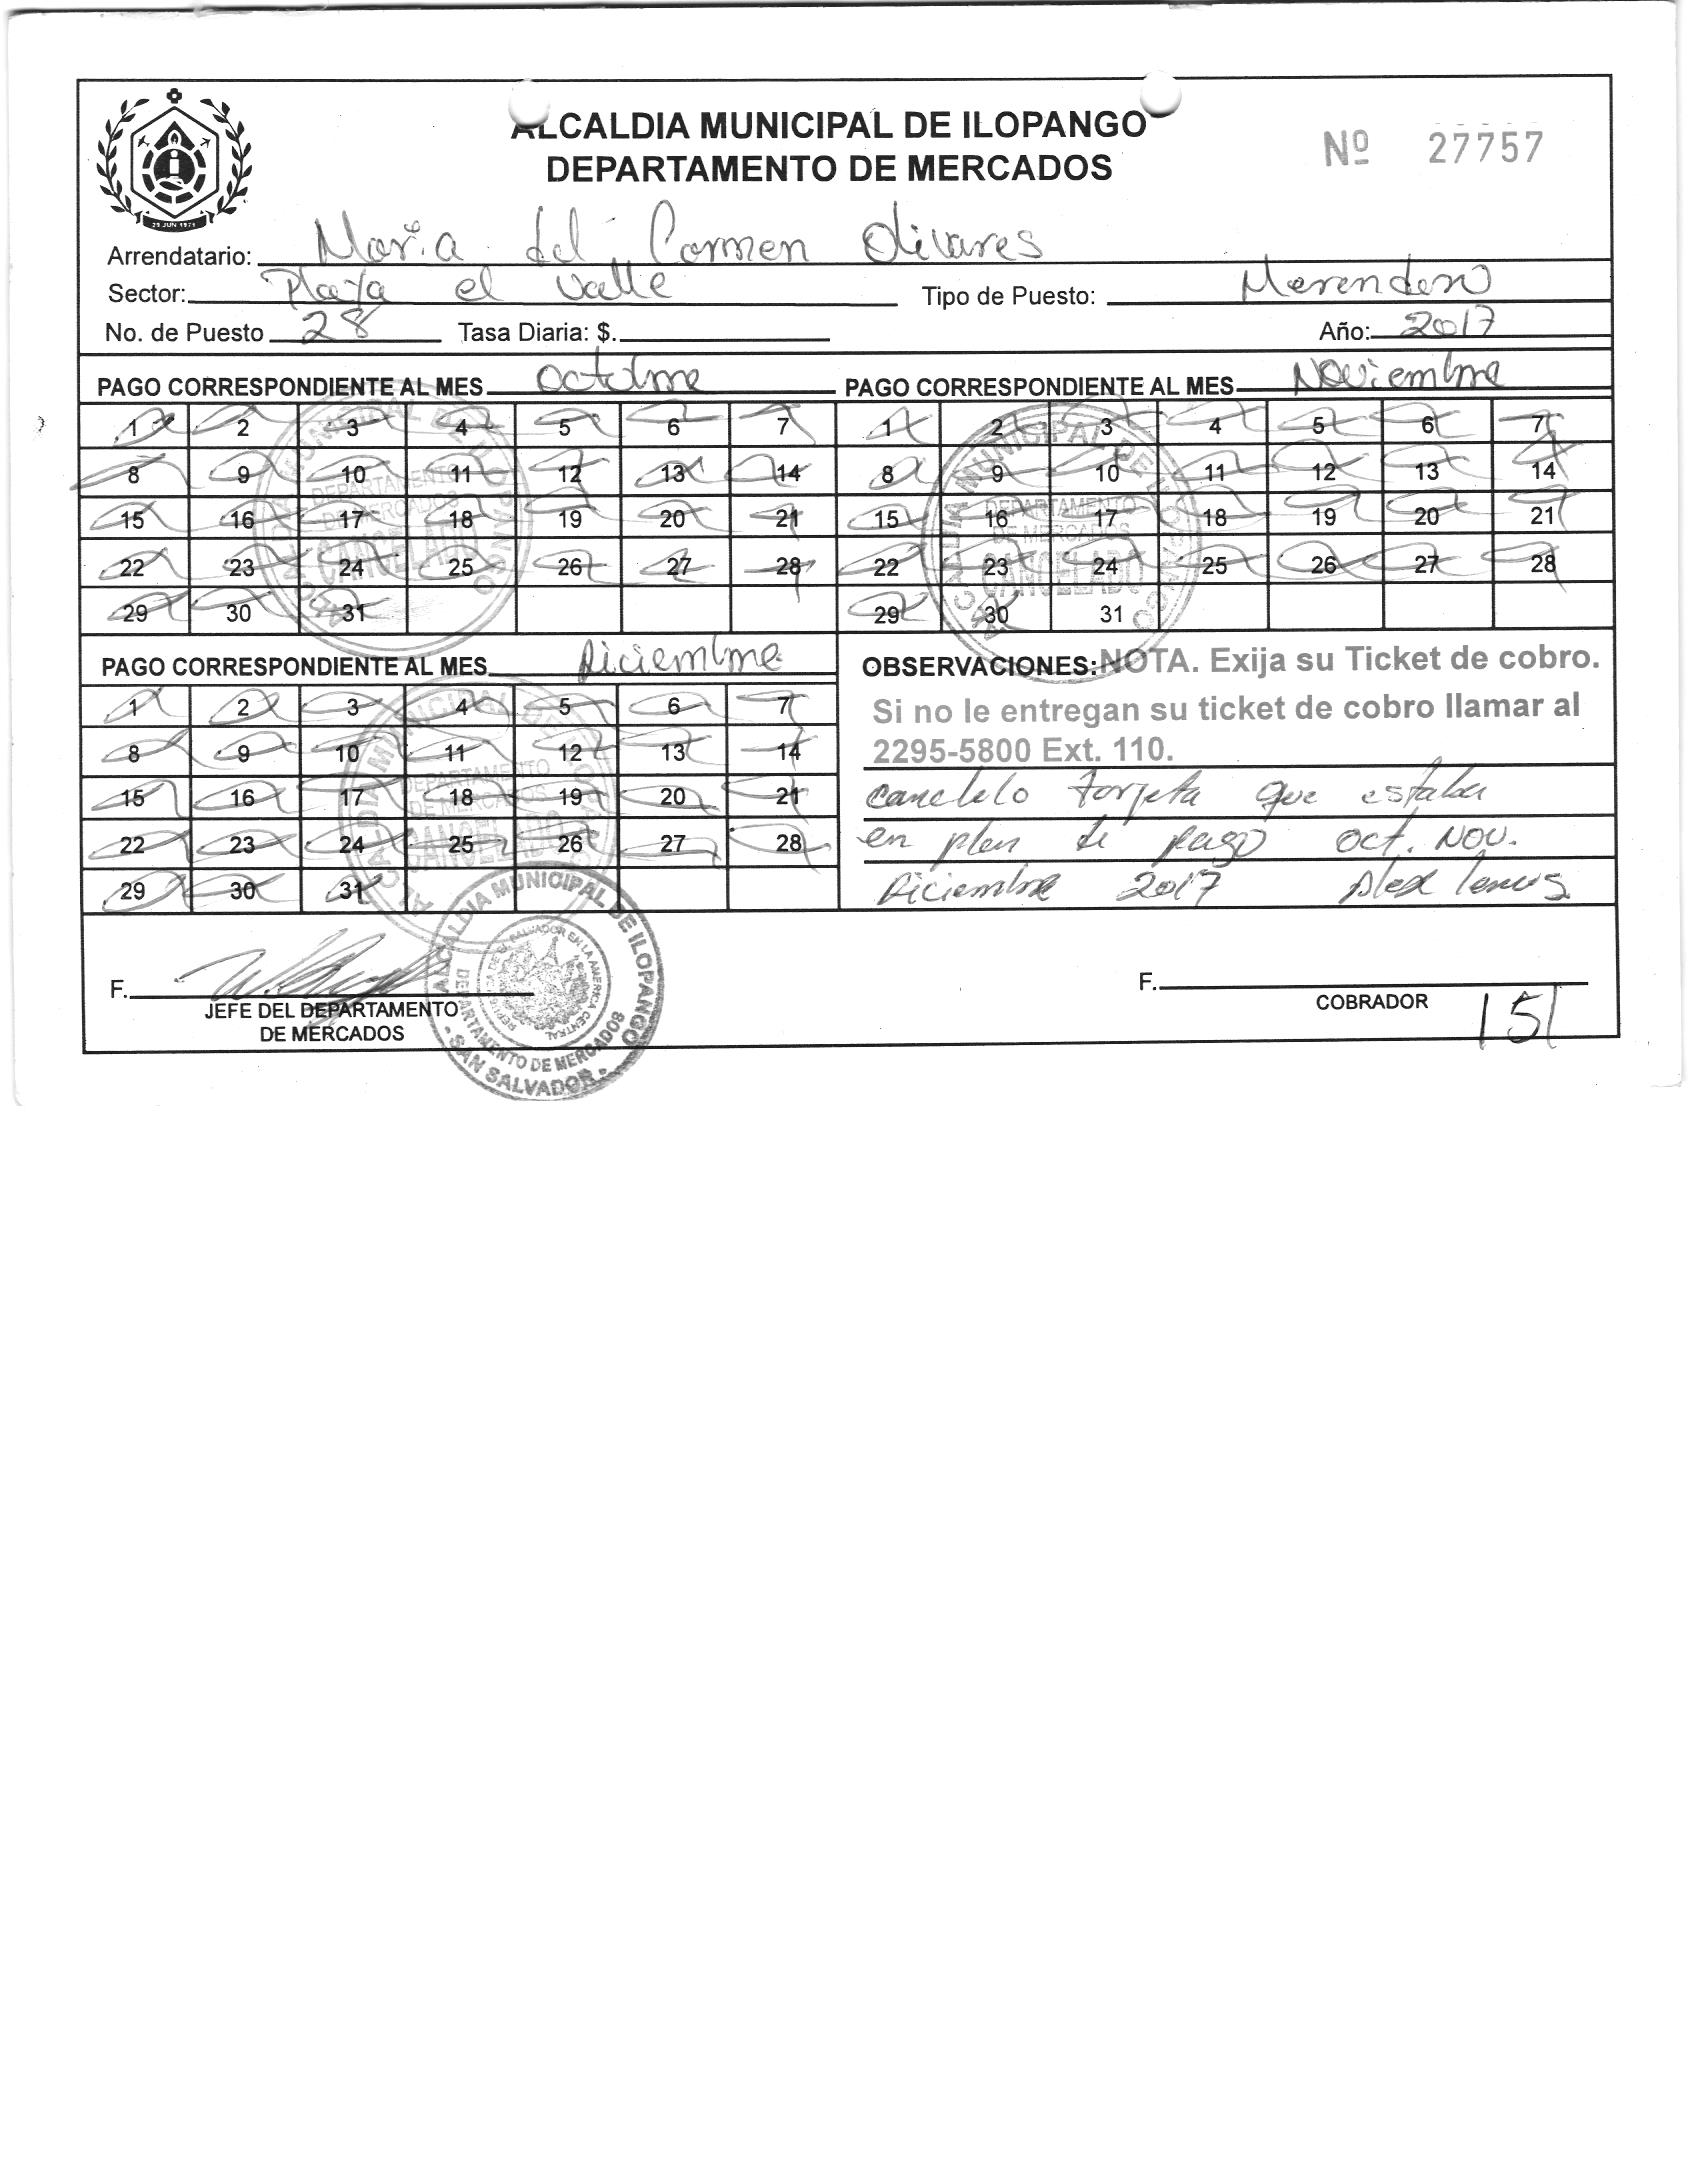 ALCALDIA MUNICIPAL DE ILOPANGO
DEPARTAMENTO DE MERCADOS
Nº 27757
29 JUN 1971
Arrendatario: Maria del Carmen Olivares
Sector: Playa el Valle Tipo de Puesto: Merendero
No. de Puesto 28 Tasa Diaria: $. Año: 2017
PAGO CORRESPONDIENTE AL MES octubre PAGO CORRESPONDIENTE AL MES Noviembre
1 2 3 4 5 6 7 1 2 3 4 5 6 7
8 9 10 11 12 13 14 8 9 10 11 12 13 14
15 16 17 18 19 20 21 15 16 17 18 19 20 21
22 23 24 25 26 27 28 22 23 24 25 26 27 28
29 30 31 29 30 31
ALCALDIA MUNICIPAL DE ILOPANGO
DEPARTAMENTO
DE MERCADOS
CANCELADO
ALCALDIA MUNICIPAL DE ILOPANGO
DEPARTAMENTO
DE MERCADOS
CANCELADO
PAGO CORRESPONDIENTE AL MES Diciembre
1 2 3 4 5 6 7
8 9 10 11 12 13 14
15 16 17 18 19 20 21
22 23 24 25 26 27 28
29 30 31
ALCALDIA MUNICIPAL DE ILOPANGO
DEPARTAMENTO
DE MERCADOS
CANCELADO
OBSERVACIONES: NOTA. Exija su Ticket de cobro.
Si no le entregan su ticket de cobro llamar al
2295-5800 Ext. 110.
canclelo tarjeta que estaba
en plan de pago oct. NOV.
Diciembre 2017 Alex Lemus
F.
JEFE DEL DEPARTAMENTO
DE MERCADOS
ALCALDIA MUNICIPAL DE ILOPANGO
DEPARTAMENTO DE MERCADOS
- SAN SALVADOR -
F.
COBRADOR
151